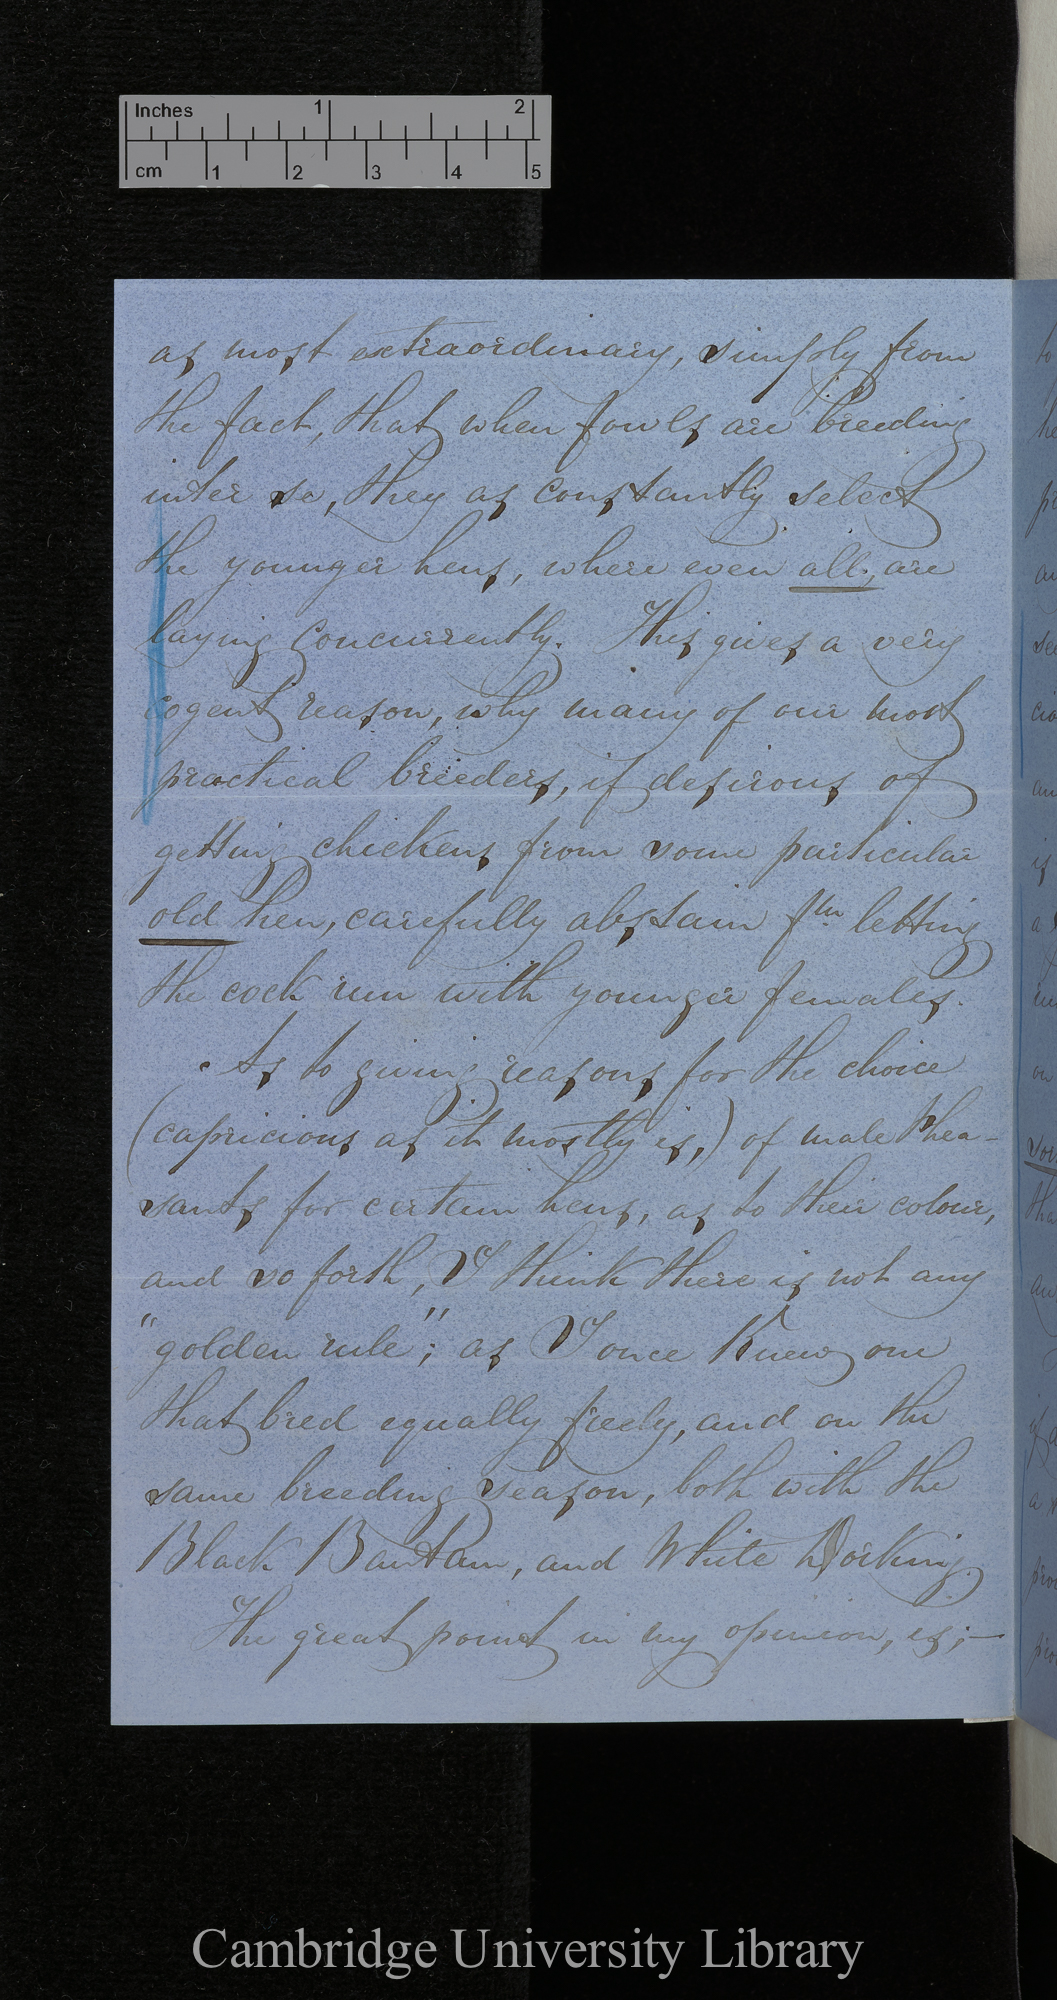 Inches 1 2
cm 1 2 3 4 5
as most extraordinary, simply from
the fact, that when fowls are breeding
inter se, they as constantly select
the younger hens, where even all, are
laying concurrently. This gives a very
cogent reason, why many of our most
practical breeders, if desirous of
getting chickens from some particular
old hen, carefully abstain fm letting
the cock run with younger females.
As to giving reasons for the choice
(capricious as it mostly is,) of male Phea-
sants for certain hens, as to their colour,
and so forth, I think there is not any
"golden rule"; as I once knew one
that bred equally freely, and on the
same breeding season, both with the
Black Bantam, and White Dorking.
The great point in my opinion, is;—
Cambridge University Library